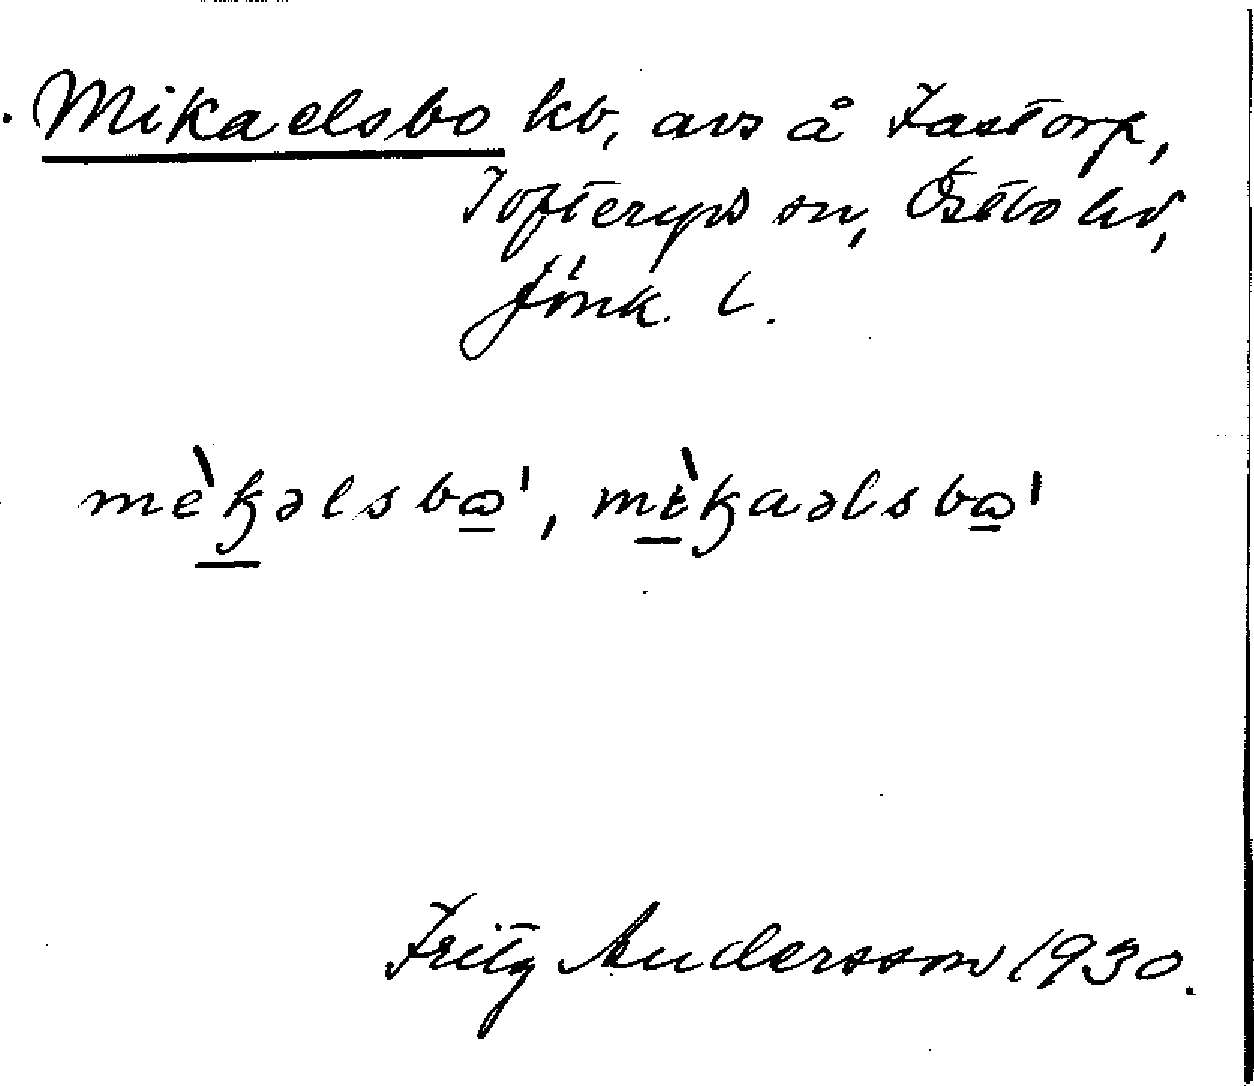 Mikaelsbo kv, avs å Fastorp,
Tofteryds sn, Östbo hd,
Jönk. l.
mèkəlsbɷ', mèkaəlsbɷ'
Fritz Andersson 1930.